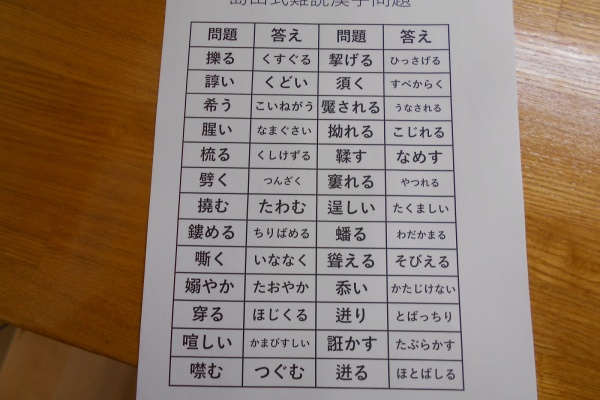 島田式難読漢字問題
問題 答え 問題 答え
擽る くすぐる 挈げる ひっさげる
諄い くどい 須く すべからく
希う こいねがう 魘される うなされる
腥い なまぐさい 拗れる こじれる
梳る くしけずる 鞣す なめす
劈く つんざく 窶れる やつれる
撓む たわむ 逞しい たくましい
鏤める ちりばめる 蟠る わだかまる
嘶く いななく 聳える そびえる
嫋やか たおやか 忝い かたじけない
穿る ほじくる 迸り とばっちり
喧しい かまびすしい 誑かす たぶらかす
噤む つぐむ 迸る ほとばしる